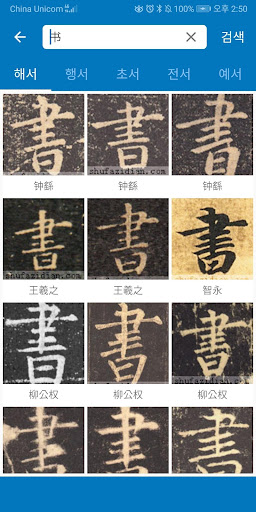 China Unicom 100% 오후 2:50
书 검색
해서 행서 초서 전서 예서
書 書 書
shufazidian.com
钟繇 钟繇 钟繇
書 書 書
shufazidian.com
王羲之 王羲之 智永
書 書 書
柳公权 柳公权 柳公权
書 書 書